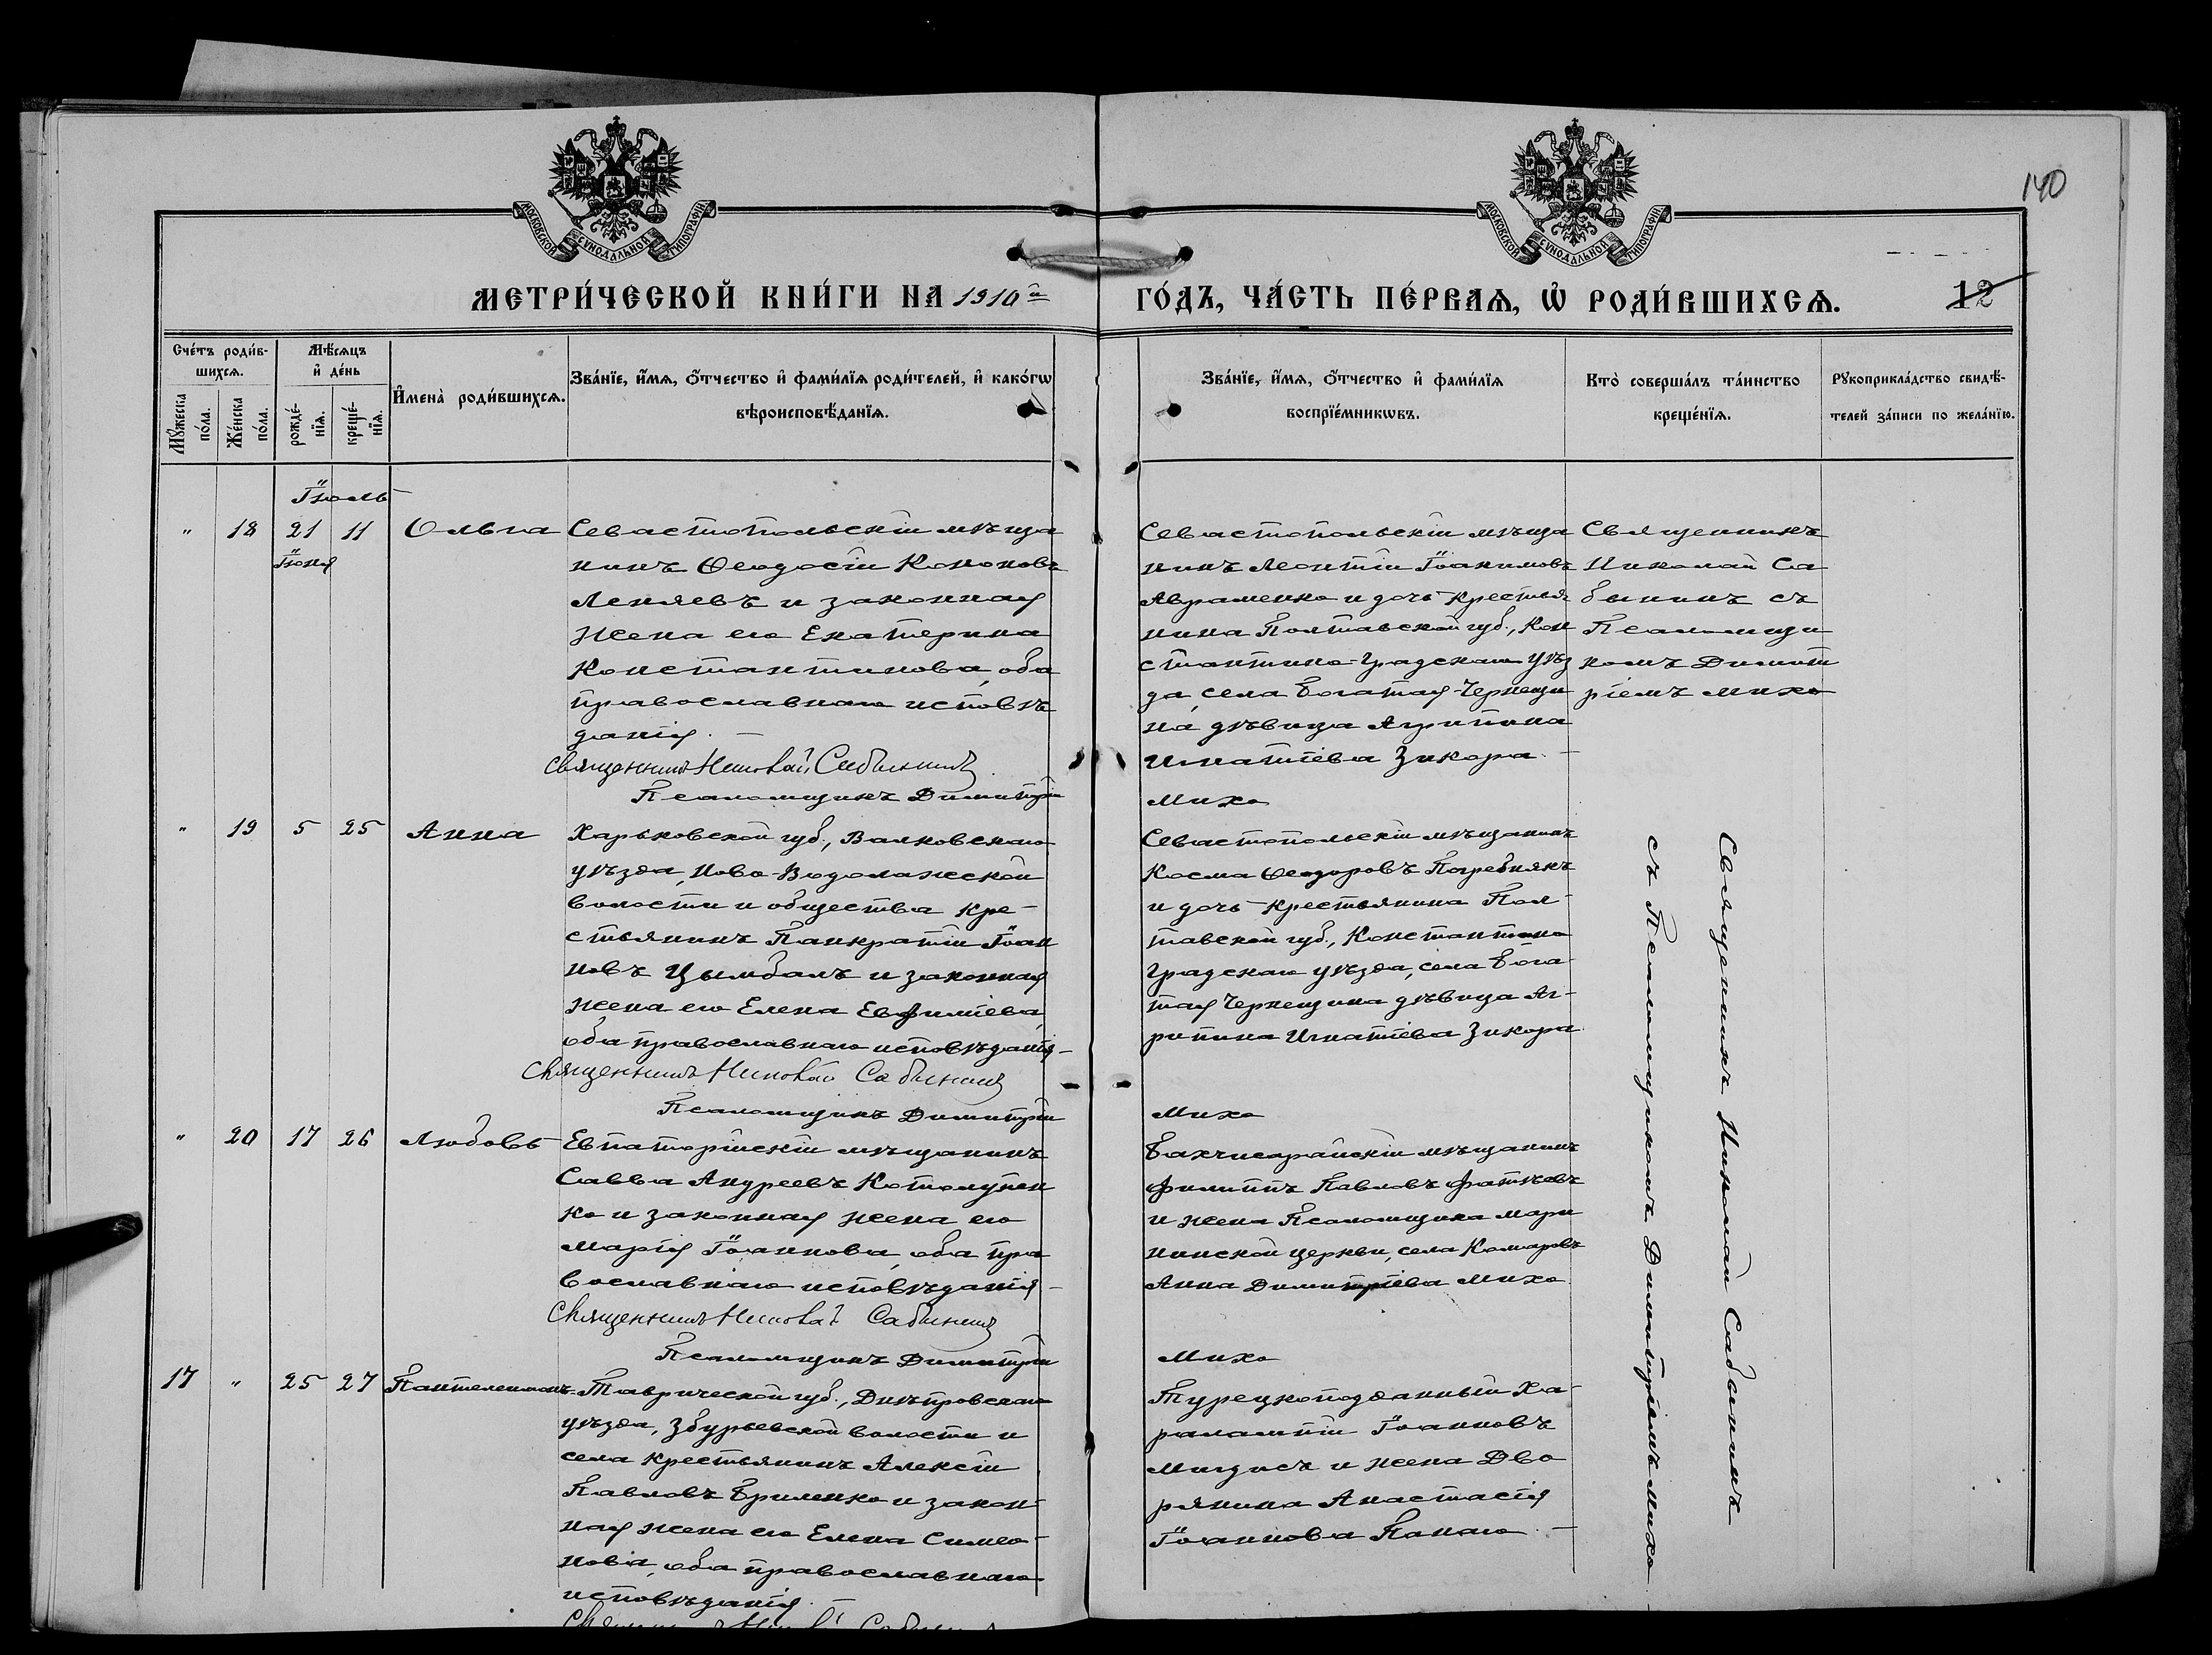 140
МОСКОВСКОЙ СѴНОДАЛЬНОЙ ТИПОГРАФІИ
МОСКОВСКОЙ СѴНОДАЛЬНОЙ ТИПОГРАФІИ
МЕТРИ́ЧЕСКОЙ КНИ́ГИ НА 1910й
ГО́ДЪ, ЧА́СТЬ ПЕ́РВАѦ, Ѡ҆ РОДИ́ВШИХСѦ.
12
Сче́тъ роди́в-
шихсѧ.
Мѣ́сѧцъ
и҆ де́нь
Мꙋ́жеска
по́ла.
Же́нска
по́ла.
рожде́-
нїѧ.
креще́-
нїѧ.
И҆мена̀ роди́вшихсѧ.
Зва́нїе, и҆́мѧ, ѻ҆́тчество и҆ фами́лїѧ роди́телей, и҆ како́гѡ
вѣроисповѣ́данїѧ.
Зва́нїе, и҆́мѧ, ѻ҆́тчество и҆ фами́лїѧ
воспрїе́мникѡвъ.
Кто̀ соверша́лъ та́инство
креще́нїѧ.
Рꙋкоприкла́дство свидѣ́-
телей за́писи по жела́нїю.
Іюль
" 18 21 11 Ольга
Іюня
Севастопольскій мѣща
нинъ Ѳеодосій Кононовъ
Леняевъ и законная
жена его Екатерина
Константинова, оба
православнаго исповѣ
данія. —
Священникъ Николай Сабининъ
Псаломщикъ Димитрій
Севастопольскій мѣща
нинъ Леонтій Іоакимовъ
Авраменко и дочь крестья
нина Полтавской губ., Кон
стантино-градскаго уѣз
да, села Богатая-Чернещи
на дѣвица Агрипина
Игнатіева Зикора. —
Михо
Священникъ
Николай Са
бининъ съ
Псаломщи
комъ Димит
ріемъ Михо
" 19 5 25 Анна
Харьковской губ., Валковскаго
уѣзда, Ново-Водолажской
волости и общества кре-
стьянинъ Панкратій Іоан
новъ Цымбалъ и законная
жена его Елена Евфиміева,
оба православнаго исповѣданія —
Священникъ Николай Сабининъ
Псаломщикъ Димитрій
Севастопольскій мѣщанинъ
Косма Ѳеодоровъ Погребнякъ
и дочь крестьянина Пол-
тавской губ., Константино
градскаго уѣзда, села Бога-
тая Чернещина дѣвица Аг-
рипина Игнатіева Зикора.
Михо
Священникъ Николай Сабининъ
съ Псаломщикомъ Димитріемъ Михо
" 20 17 26 Любовь
Евпаторійскій мѣщанинъ
Савва Андреевъ Котолупен
ко и законная жена его
Марія Іоаннова, оба пра
вославнаго исповѣданія —
Священникъ Николай Сабининъ
Псаломщикъ Димитрій
Бахчисарайскій мѣщанинъ
Филиппъ Павловъ Фатѣевъ
и жена Псаломщика Мари
нинской церкви, села Комаровъ
Анна Димитріева Михо
Михо
17 " 25 27 Пантелеимонъ
Таврической губ., Днѣпровскаго
уѣзда, Збурьевской волости и
села крестьянинъ Алексій
Павловъ Бриленко и закон-
ная жена его Елена Симео-
нова, оба православнаго
исповѣданія.
Турецкоподданный Ха-
ралампій Іоанновъ
Мигдисъ и жена Дво
рянина Анастасія
Іоаннова Панаго —